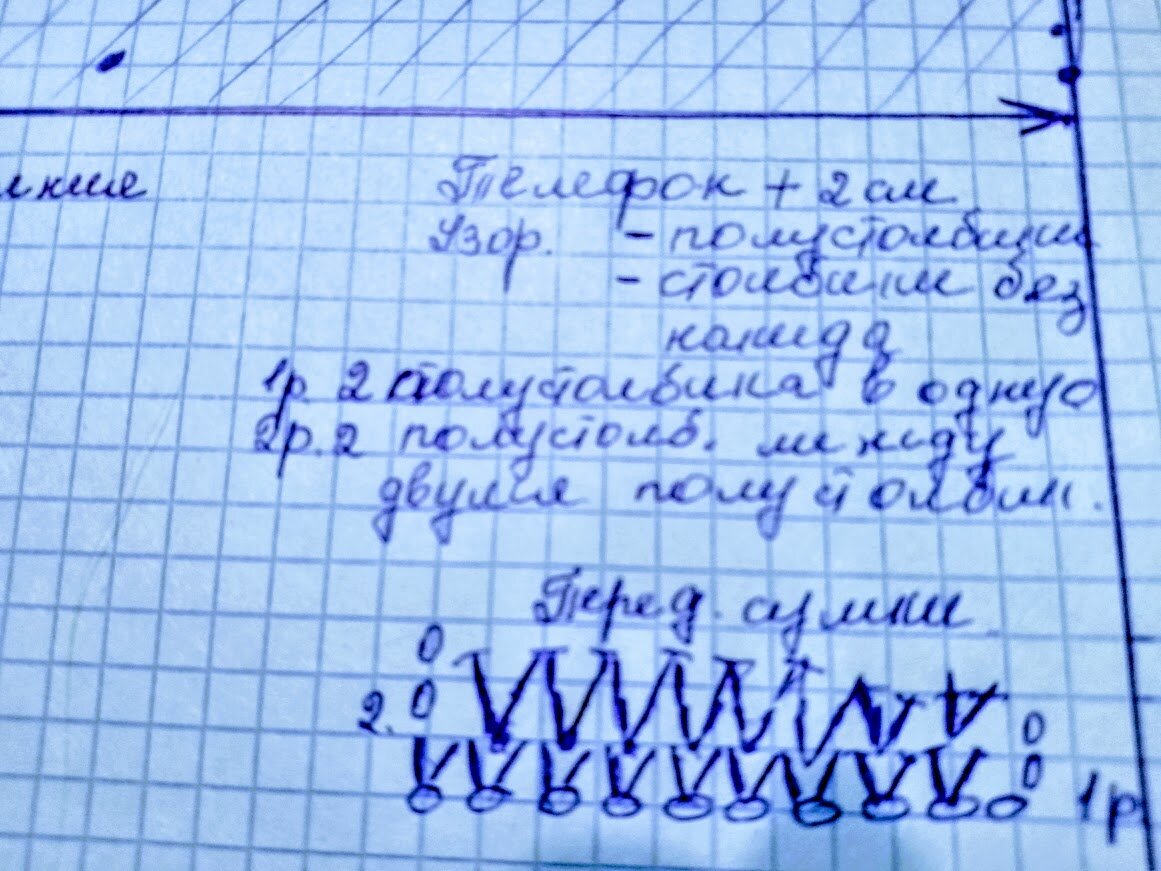 Телефон + 2 см
Узор. - полустолбики
- столбики без
накида
1р. 2 полустолбика в одну
2р. 2 полустолб. между
двумя полустолбик.
Перед. сумки
2.
1р